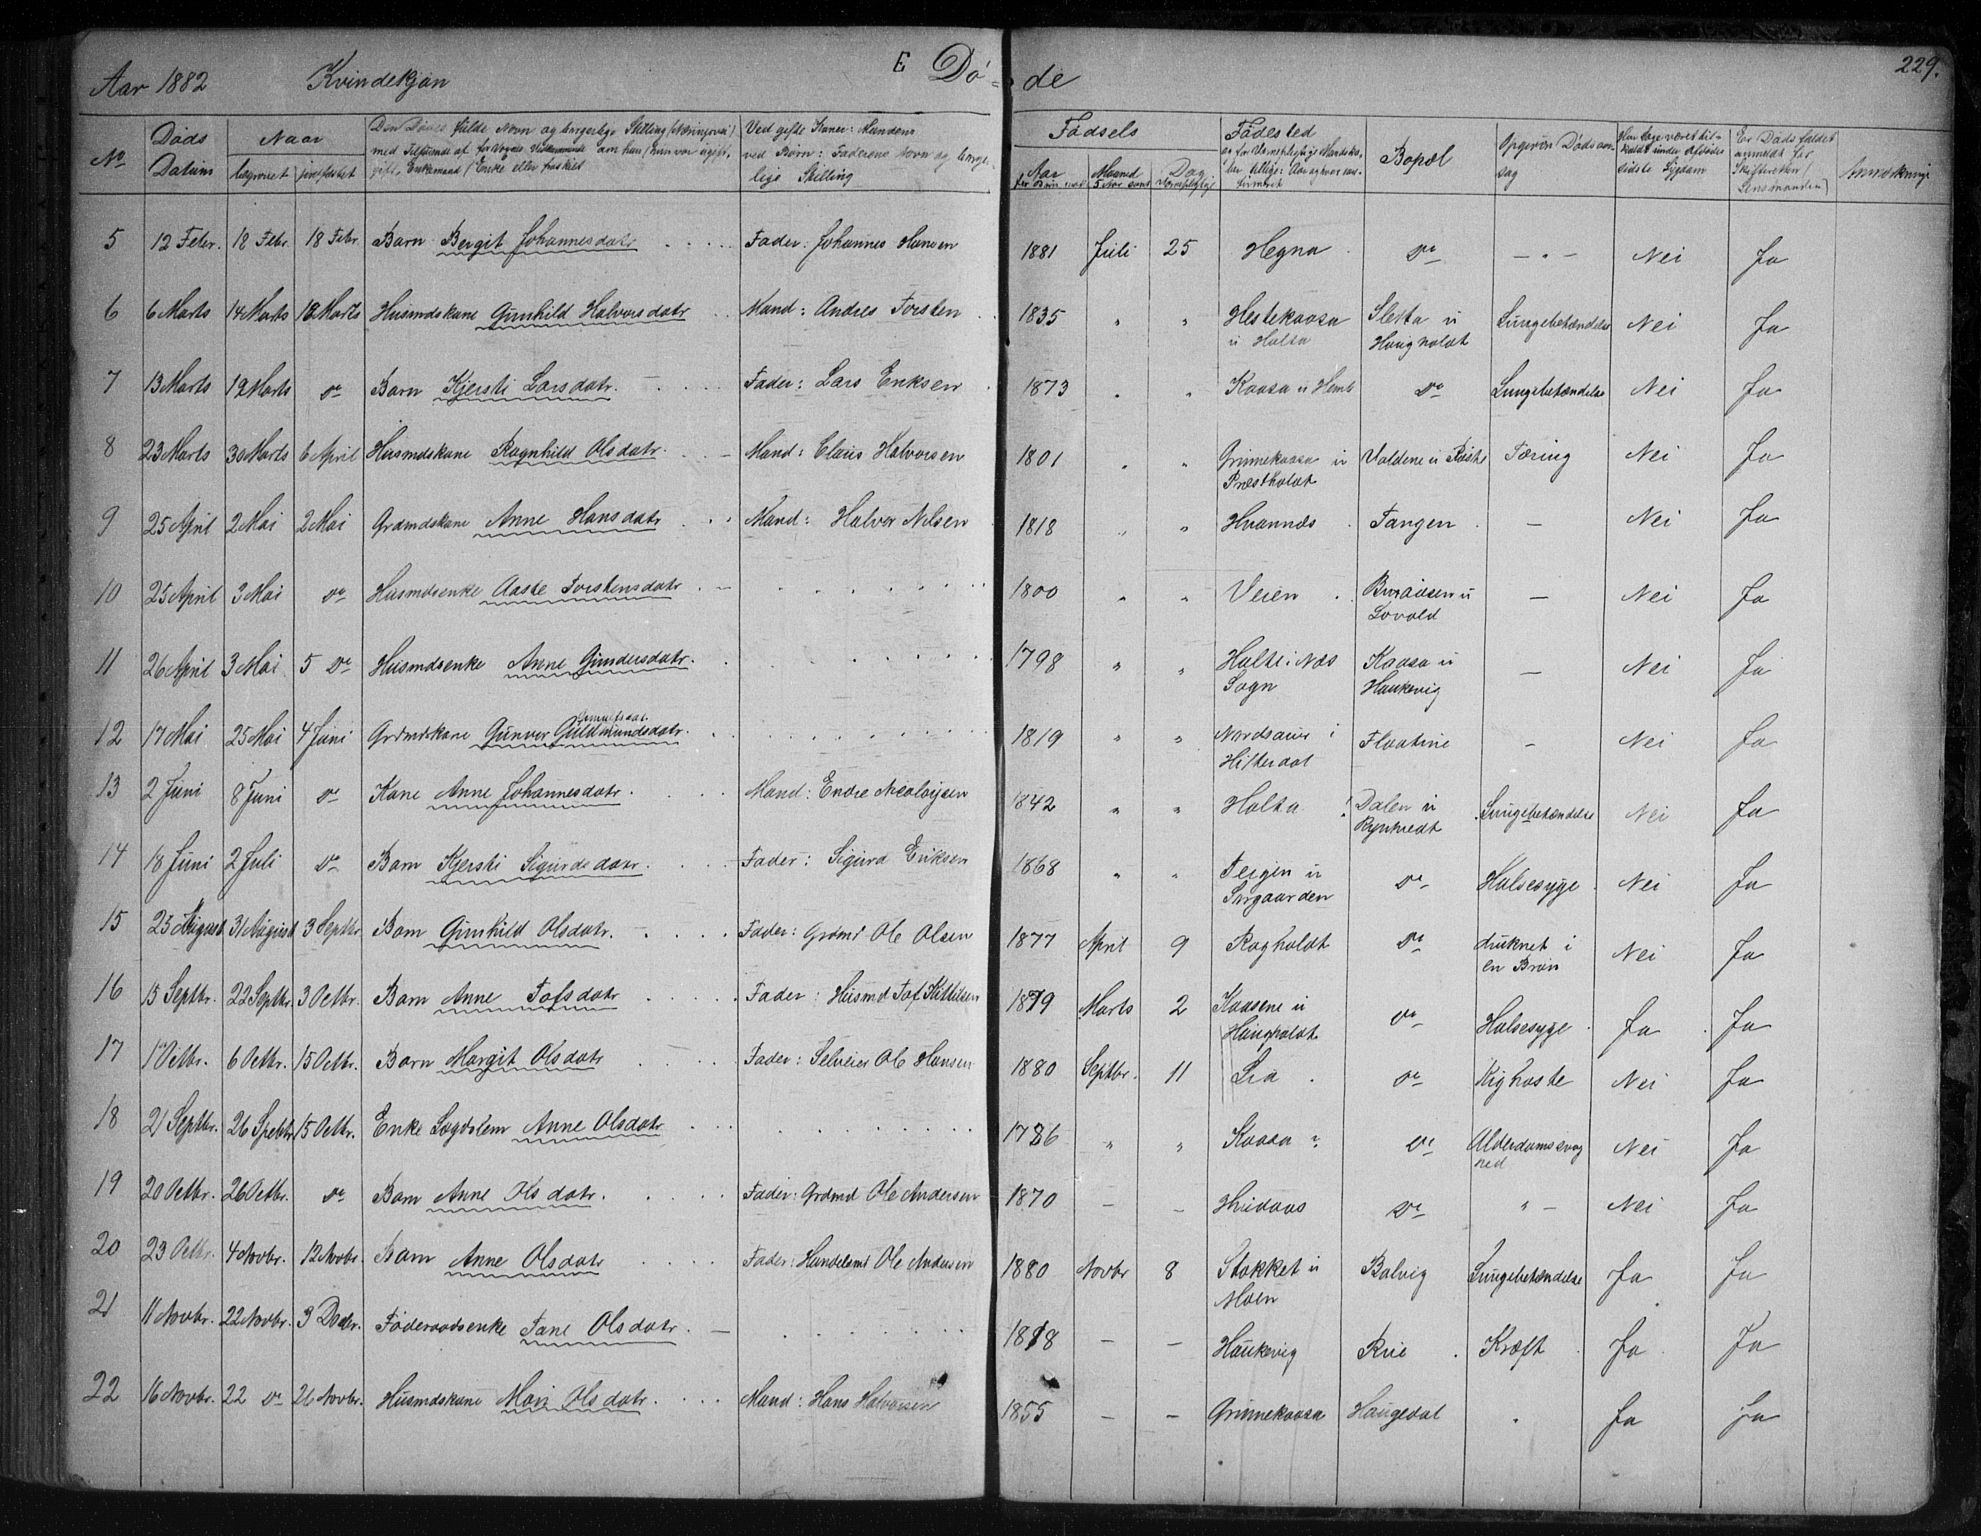 Aar 1882 Kvindekjøn E Dø- de 229.
No Døds Datum Naar begravet jordfæstet
Den Dødes fulde Navn og borgerlige Stilling (Næringsvei)
Ved gifte Koner: Mandens
ved Børn: Faderens Navn og borger-
lige Stilling
Fødsels Aar Maaned Dag
Fødested
Bopæl
Opgiven Dødsaar-
sag
Har Læge været til-
kaldt under Afdødes
sidste Sygdom
Er Dødsfaldet
anmeldt for
Skifteretten /
Lensmanden)
Anmærkninger
5 12 Febr. 18 Febr. 18 Febr. Barn Bergit Johannesdatr Fader: Johannes Hansen 1881 Juli 25 Hegna do — " — Nei Ja
6 6 Marts 14 Marts 18 Marts Husmdskone Gunhild Halvorsdatr Mand: Andres Torsten 1835 " " Hestekaasa Sletta u Lungebetændelse Nei Ja
u Holta Haugholdt
7 13 Marts 19 Marts do Barn Kjersti Larsdatr. Fader: Lars Eriksen 1873 " " Kaasa u Hemb do Lungebetændelse Nei Ja
8 23 Marts 30 Marts 6 April Husmdskone Ragnhild Olsdatr. Mand: Claus Halvorsen 1801 " " Grinnekaasa u Valdene u Tæring Nei Ja
Præstholdt
9 25 April 2 Mai 2 Mai Grdmdskone Anne Hansdatr Mand: Halvor Nilsen 1818 " " Hvannæs Tangen — Nei Ja
10 25 April 3 Mai do Husmdsenke Aaste Torstensdatr 1800 " " Veien u — Nei Ja
Lovold
11 26 April 3 Mai 5 do Husmdsenke Anne Gundersdatr. 1798 " " Holte i Næs Kaasa u — Nei Ja
Sogn Haukevig
12 17 Mai 25 Mai 4 Juni Grdmdskone Gunvor Guldmundsdatr. 1819 " " i Flaatine - Nei Ja
Hitterdal
13 2 Juni 8 Juni do Kone Anne Johannesdatr. Mand: Endre Nicolaysen 1842 " " Holta Dalen u Lungebetændelse Nei Ja
14 18 Juni 2 Juli do Barn Kjersti Sigurdsdatr. Fader: Sigurd Eriksen 1868 " " Teigen u do Halsesyge Nei Ja
15 25 August 31 August 3 Septbr. Barn Gunhild Olsdatr. Fader: Grdmd Ole Olsen 1877 April 9 Rogholdt do druknet i Nei Ja
en Brøn
16 15 Septbr. 22 Septbr. 3 Octbr. Barn Anne Tofsdatr Fader: Husmd Tof Kittilsen 1879 Marts 2 Kaasene u do Halsesyge Ja Ja
Haugholdt
17 1 Octbr. 6 Octbr. 15 Octbr. Barn Margit Olsdatr Fader: Selveier Ole Hansen 1880 Septbr. 11 Lia do Kighoste Nei Ja
18 21 Septbr. 26 Spebtr 15 Octbr. Enke Lægdslem Anne Olsdatr 1786 " " Kaasa do Alderdomssvag Nei Ja
hed
19 20 Octbr. 26 Octbr. do Barn Anne Olsdatr. Fader: Grdmd Ole Andersen 1870 — — do " — Nei Ja
20 23 Octbr. 4 Novbr. 12 Novbr. Barn Anne Olsdatr Fader: Handelsmd Ole Andersen 1880 Novbr 8 Stokket u Bolvig Lungebetændelse Ja Ja
Moen
21 11 Novbr. 22 Novbr. 3 Decbr. Føderaadsenke Tone Olsdatr. 1818 — — Haukevig Rui Kræft Ja Ja
22 16 Novbr. 22 do 26 Novbr. Husmdskone Mari Olsdatr. Mand: Hans Halvorsen 1855 — — Grinnekaasa Haugedal " Ja Ja